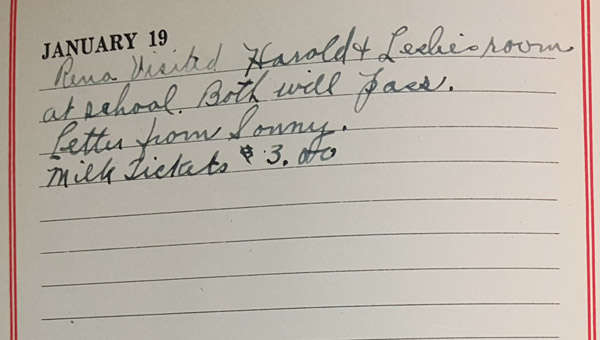 JANUARY 19
Rena Visited Harold & Leslies room
at school. Both will pass.
Letter from Sonny.
Milk Tickets $3.00